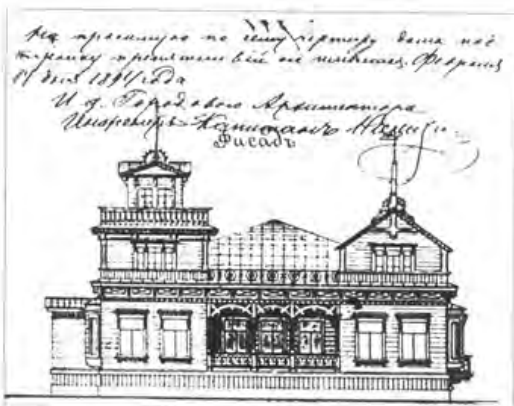 На просимую по сему чертежу дома пос
тройку препятствий не имеется. Февраля
дня 1894 года
И. д. Городового Архитектора
Инженеръ-Капитанъ
Фасадъ